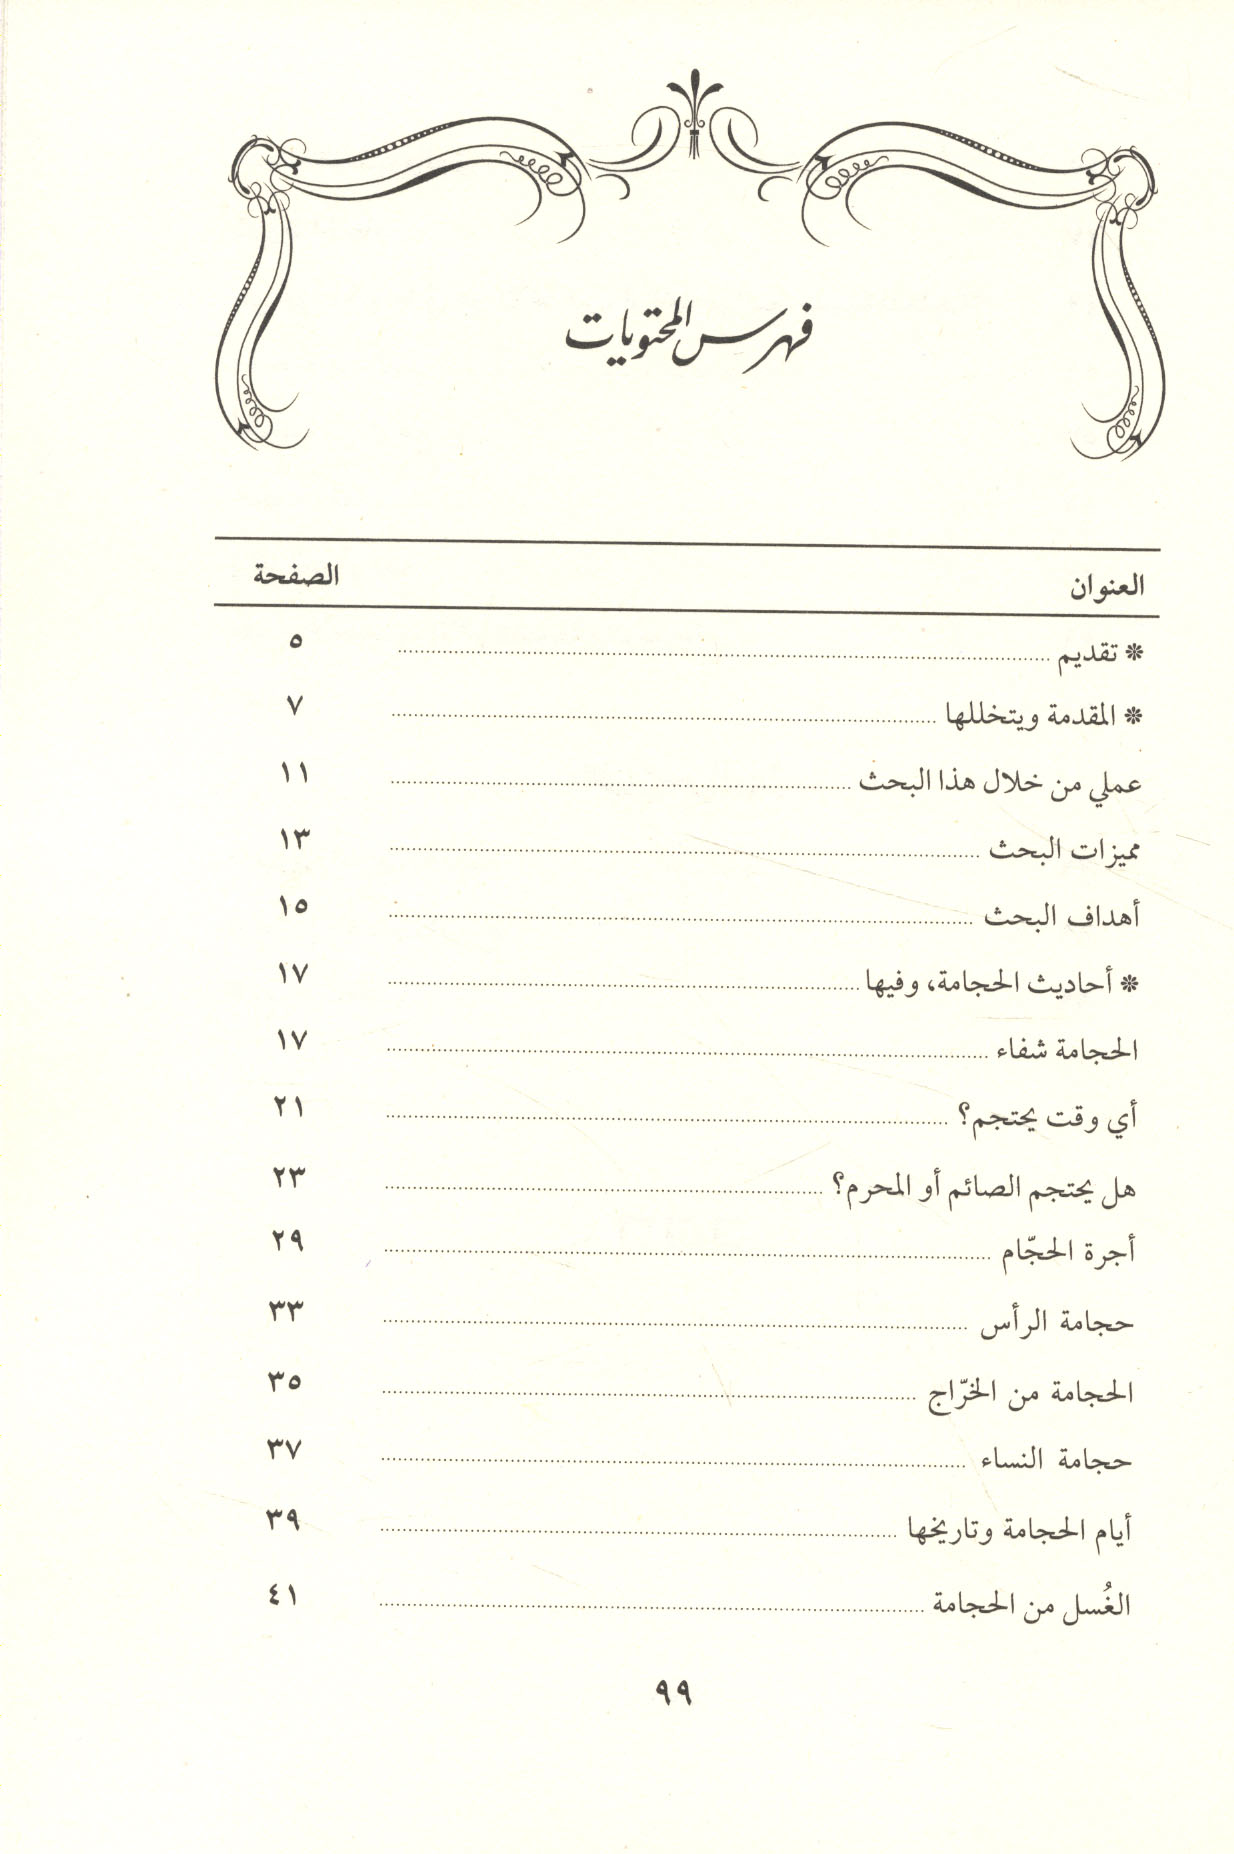 فهرس المحتويات
العنوان الصفحة
* تقديم ٥
* المقدمة ويتخللها ٧
عملي من خلال هذا البحث ١١
مميزات البحث ١٣
أهداف البحث ١٥
* أحاديث الحجامة، وفيها ١٧
الحجامة شفاء ١٧
أي وقت يحتجم؟ ٢١
هل يحتجم الصائم أو المحرم؟ ٢٣
أجرة الحجّام ٢٩
حجامة الرأس ٣٣
الحجامة من الخرّاج ٣٥
حجامة النساء ٣٧
أيام الحجامة وتاريخها ٣٩
الغُسل من الحجامة ٤١
٩٩